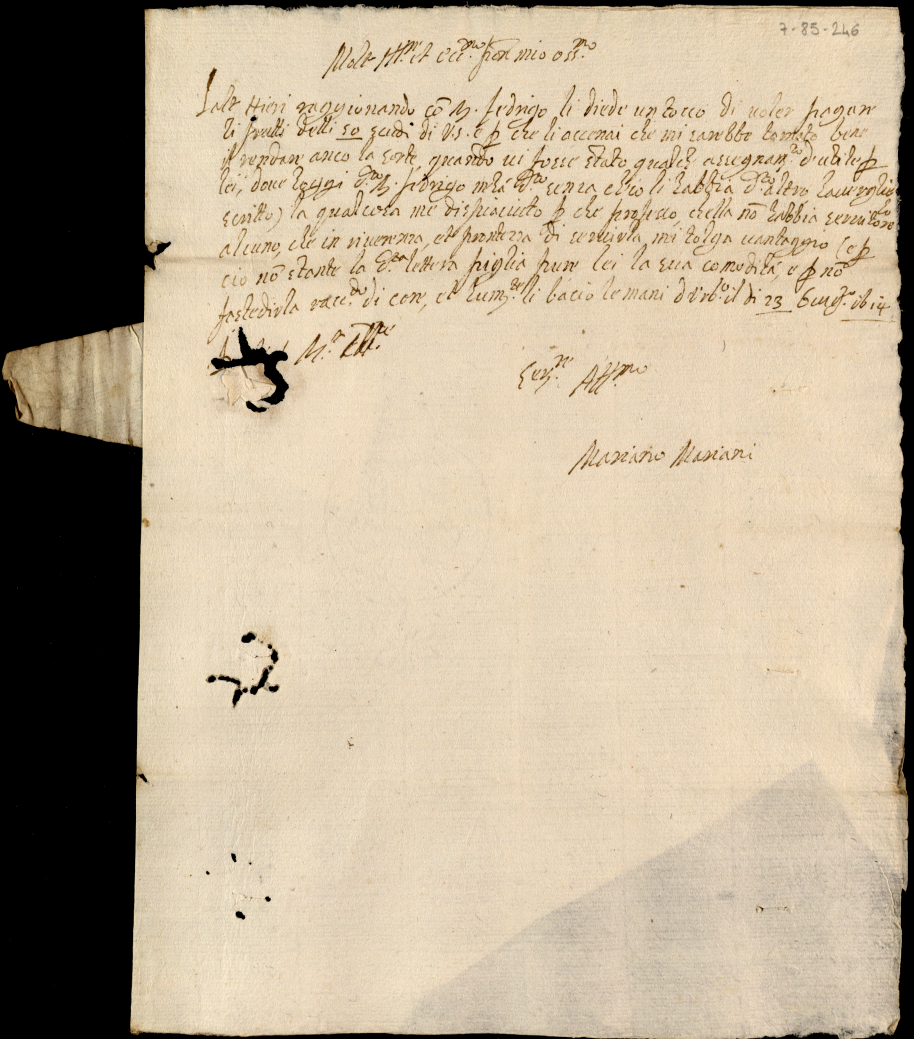 7-85-246
Molt Ill.re et ecc.mo sign mio oss.mo
L'alt. Hieri raggionando cõ M. Fedrigo li diede un tocco di voler pagare
li frutti delli 50 scudi di V.S. e p che li accenai che mi sarebbe tornato bene
il rendare anco la sorte, quando vi fosse stato qualch assegnam.to d'utile p
lei, dove hoggi d.to M. Fedrigo mhà d.to senza ch'io li habbia d.to altro
scritto) la qual cosa me dispiaciuto p che professo, chella nõ habbia servitore
alcuno, che in riverenza, et prontezza di servirla, mi tolga vantaggio (e p
ciò nõ stante la d.ta lettera piglia pure lei la sua comodità, e p nõ
fastedirla racc.do di core, et hum.te li bacio le mani d'Urb.o il di 23 1614
M.to Ill.re
Ser.re Aff.mo
Mariano Mariani